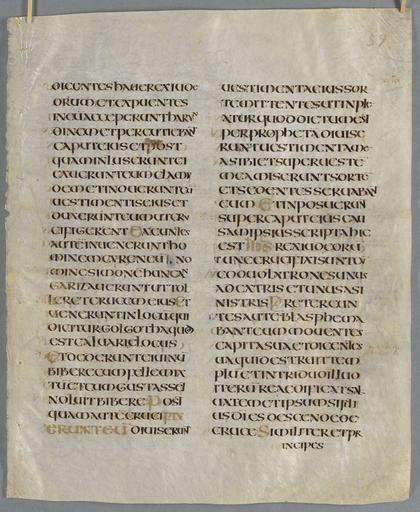 DICENTES HABE REX IUDE
ORUM ET EXPUENTES
IN EŪ ACCEPERUNT HARUN
DINEM ET PERCUTIEBANT
CAPUT EIUS ET POST
QUAM INLUSERUNT EI
EXUERUNT EUM CLAMY
DEM ET INDUERUNT EŪ
UESTIMENTIS EIUS ET
DUXERUNT EUM UT CRU
CIFIGERENT EXEUNTES
AUTĒ INUENERUNT HO
MINEM CYRENEŪ NO
MINE SIMONĒ HUNC AN
GARIZAUERUNT UT TOL
LERET CRUCEM EIUS ET
UENERUNT IN LOCŪ QUI
DICITUR GOLGOTHA QUOD
EST CALUARIE LOCUS
ET DEDERUNT EI UINŪ
BIBERE CUM FELLE MIX
TŪ ET CUM GUSTASSET
NOLUIT BIBERE POST
QUAM AUTĒ CRUCIFIX
ERUNT EŪ DIUISERUNT
UESTIMENTA EIUS SOR
TE MITTENTES UT INPLE
RET QUOD DICTUM EST
PER PROPHETĀ DIUISE
RUNT UESTIMENTA ME
A SIBI ET SUPER UESTĒ
MEĀ MISERUNT SORTĒ
ET SEDENTES SERUABAN
EUM ET INPOSUERUN
SUPER CAPUT EIUS CAU
SAM IPSIUS SCRIPTĀ HIC
EST IHS REX IUDEORŪ
TUNC CRUCIFIXI SUNT CŪ
EO DUO LATRONES UNUS
AD EXTRIS ET UNUS A SI
NISTRIS PRETEREUN
TES AUTĒ BLASPHEMA
BANT EUM MOUENTES
CAPITA SUA ET DICENTES
UA QUI DESTRUIT TEM
PLŪ ET IN TRIDUO ILLUD
ITERŪ REAEDIFICAT SAL
UA TEMETIPSUM SI FILI
US DI ES DESCENDE DE
CRUCE SIMILITER ET PR
INCIPES